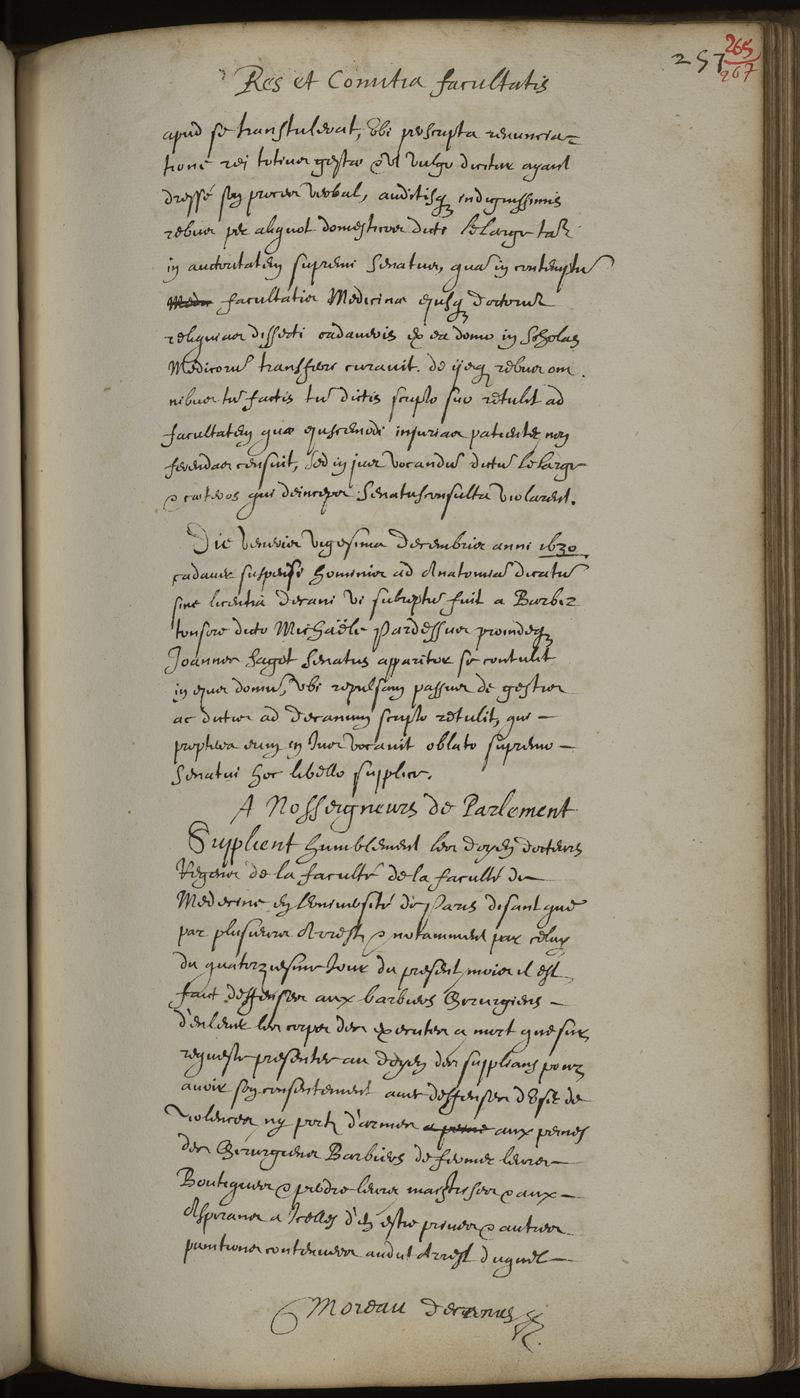 257
265
267
Res et Comitia facultatis
apud se transtulerat, Ubi perscripta renuncia=
tione rei totius gestæ & ut vulgo dicitur ayant
dressé son proces verbal, auditisq indignissimis
rebus per aliquot domesticos dicti le Large tā
in auctoritatem supremi Senatus, quā in contemptū
facultatis Medicinæ ejusq doctorū
reliquias dissecti cadaveris ex ea domo in Scholas
Medicorū transferri curavit. de ijsq rebus om
nibus tū factis tū dictis scripto suo retulit ad
facultatem quæ ejuscemodi injurias patienter non
ferendas censuit, sed in jus vocandū dictū le Large
& cæteros qui deinceps Senatusconsulta violarent.
Die Veneris vigesima decembris anni 1630
cadaver suspensi hominis ad Anatomiā dicatū
sine licentia decani vi subreptū fuit a Barbi=
tonsore dicto Michaële Pardessus proindeq
Joannes Saget Senatus apparitor se contulit
in ejus domū, ubi repulsam passus de gestis
ac dictis ad decanum scripto retulit, qui —
propterea eum in Jus vocavit oblato supremo —
Senatui hoc libello supplice.
A Nosseigneurs de Parlement
Supplient humblement les doyen docteurs
Regens de la faculté de la faculté de
Medecine en l'université de Paris disant que
par plusieurs Arrests & notamment par celuy
du quatorziesme Jour du present mois il est
faict deffenses aux barbiers Chirurgiens —
d'enlever les corps des executez a mort que sur
requeste presentee au doyen des supplians pour
avoir son consentement avec deffenses d'Use de
violences ny port d'armes a peine aux peines
des Chirurgiens Barbiers de fermer leurs —
Boutiques & perdre leurs maistrises & aux —
Aspirans a Icelles d'en estre privez & autres
punitions contenues audit Arrest duquel —
Moreau decanus